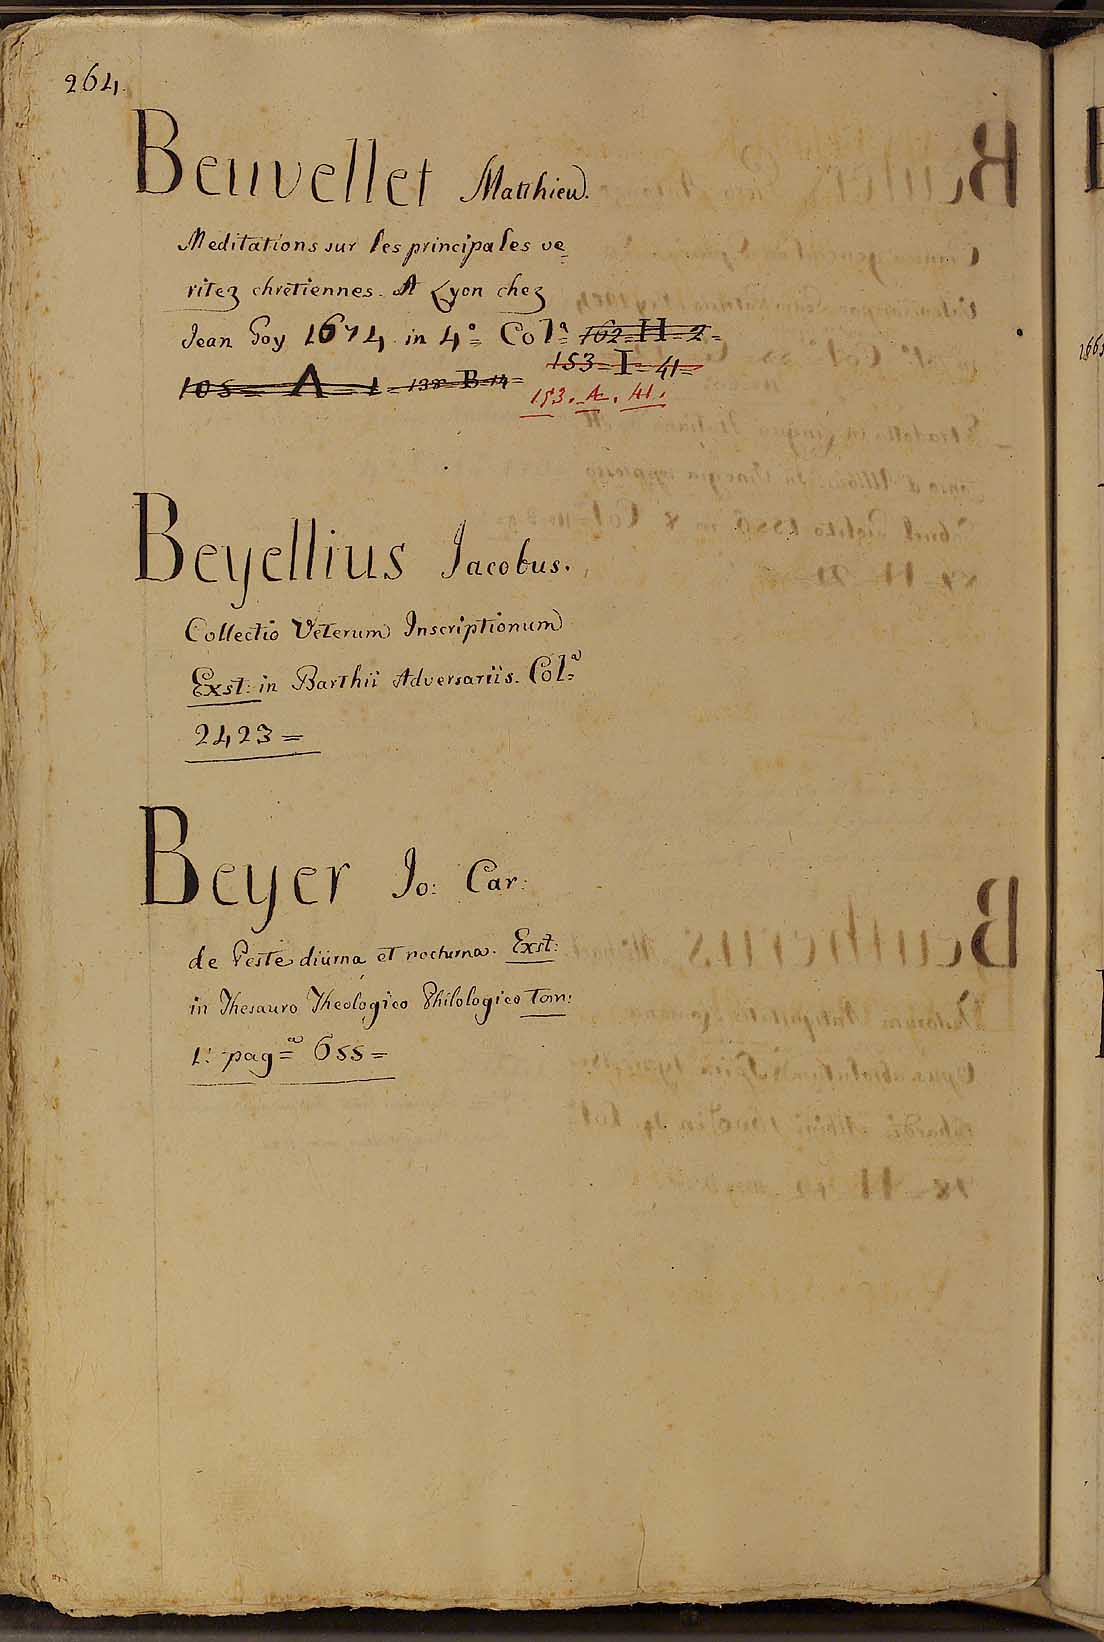 264.
Beuvellet Matthieu.
Meditations sur les principales ve=
ritez chretiennes. A Lyon chez
Jean Goy 1674 in 4.° Col.ª 162=H=2=
105=A=1=138=B=14=
153=I=41=
153. A. 41.
Beyellius Jacobus.
Collectio Veterum Inscriptionum
Exst: in Barthii Adversariis. Col.ª
2423=
Beyer Jo: Car:
de Peste diurna et nocturna. Exst:
in Thesauro Theologico Philologico tom:
1: pag=ª 655=